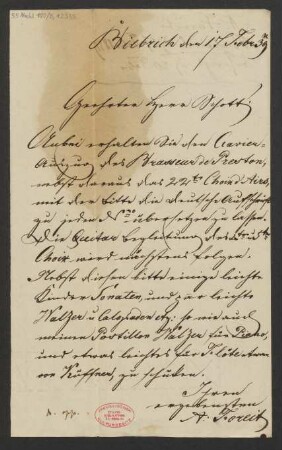 Biebrich den 17 Febr 39
Geehrter Herr Schott!
Anbei erhalten Sie den Clavier-
Auszug des Brasseur de Preston,
nebst daraus das 22te Choix d'Airs,
mit der Bitte die deutsche
zu jeden No übersetzen zu lassen.
Die Guitar Begleitung des
Choix wird nächstens folgen.
Nebst diesen bitte einige leichte
Kinder Sonaten, und gar leichte
Walzer u Galopaden so wie auch
meinen Postillon Walzer für Piano,
und etwas leichtes für Flöte
von Küffner, zu schicken.
Ihren
ergebensten
A. Foreit